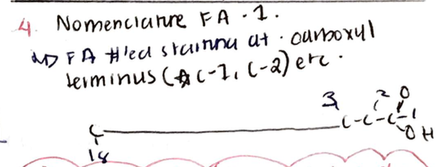 4. Nomenclature FA - 1.
FA #'ed starting at carboxyl
terminus (C-1, C-2) etc.
3 2 O
C C-C-C-1
OH
18